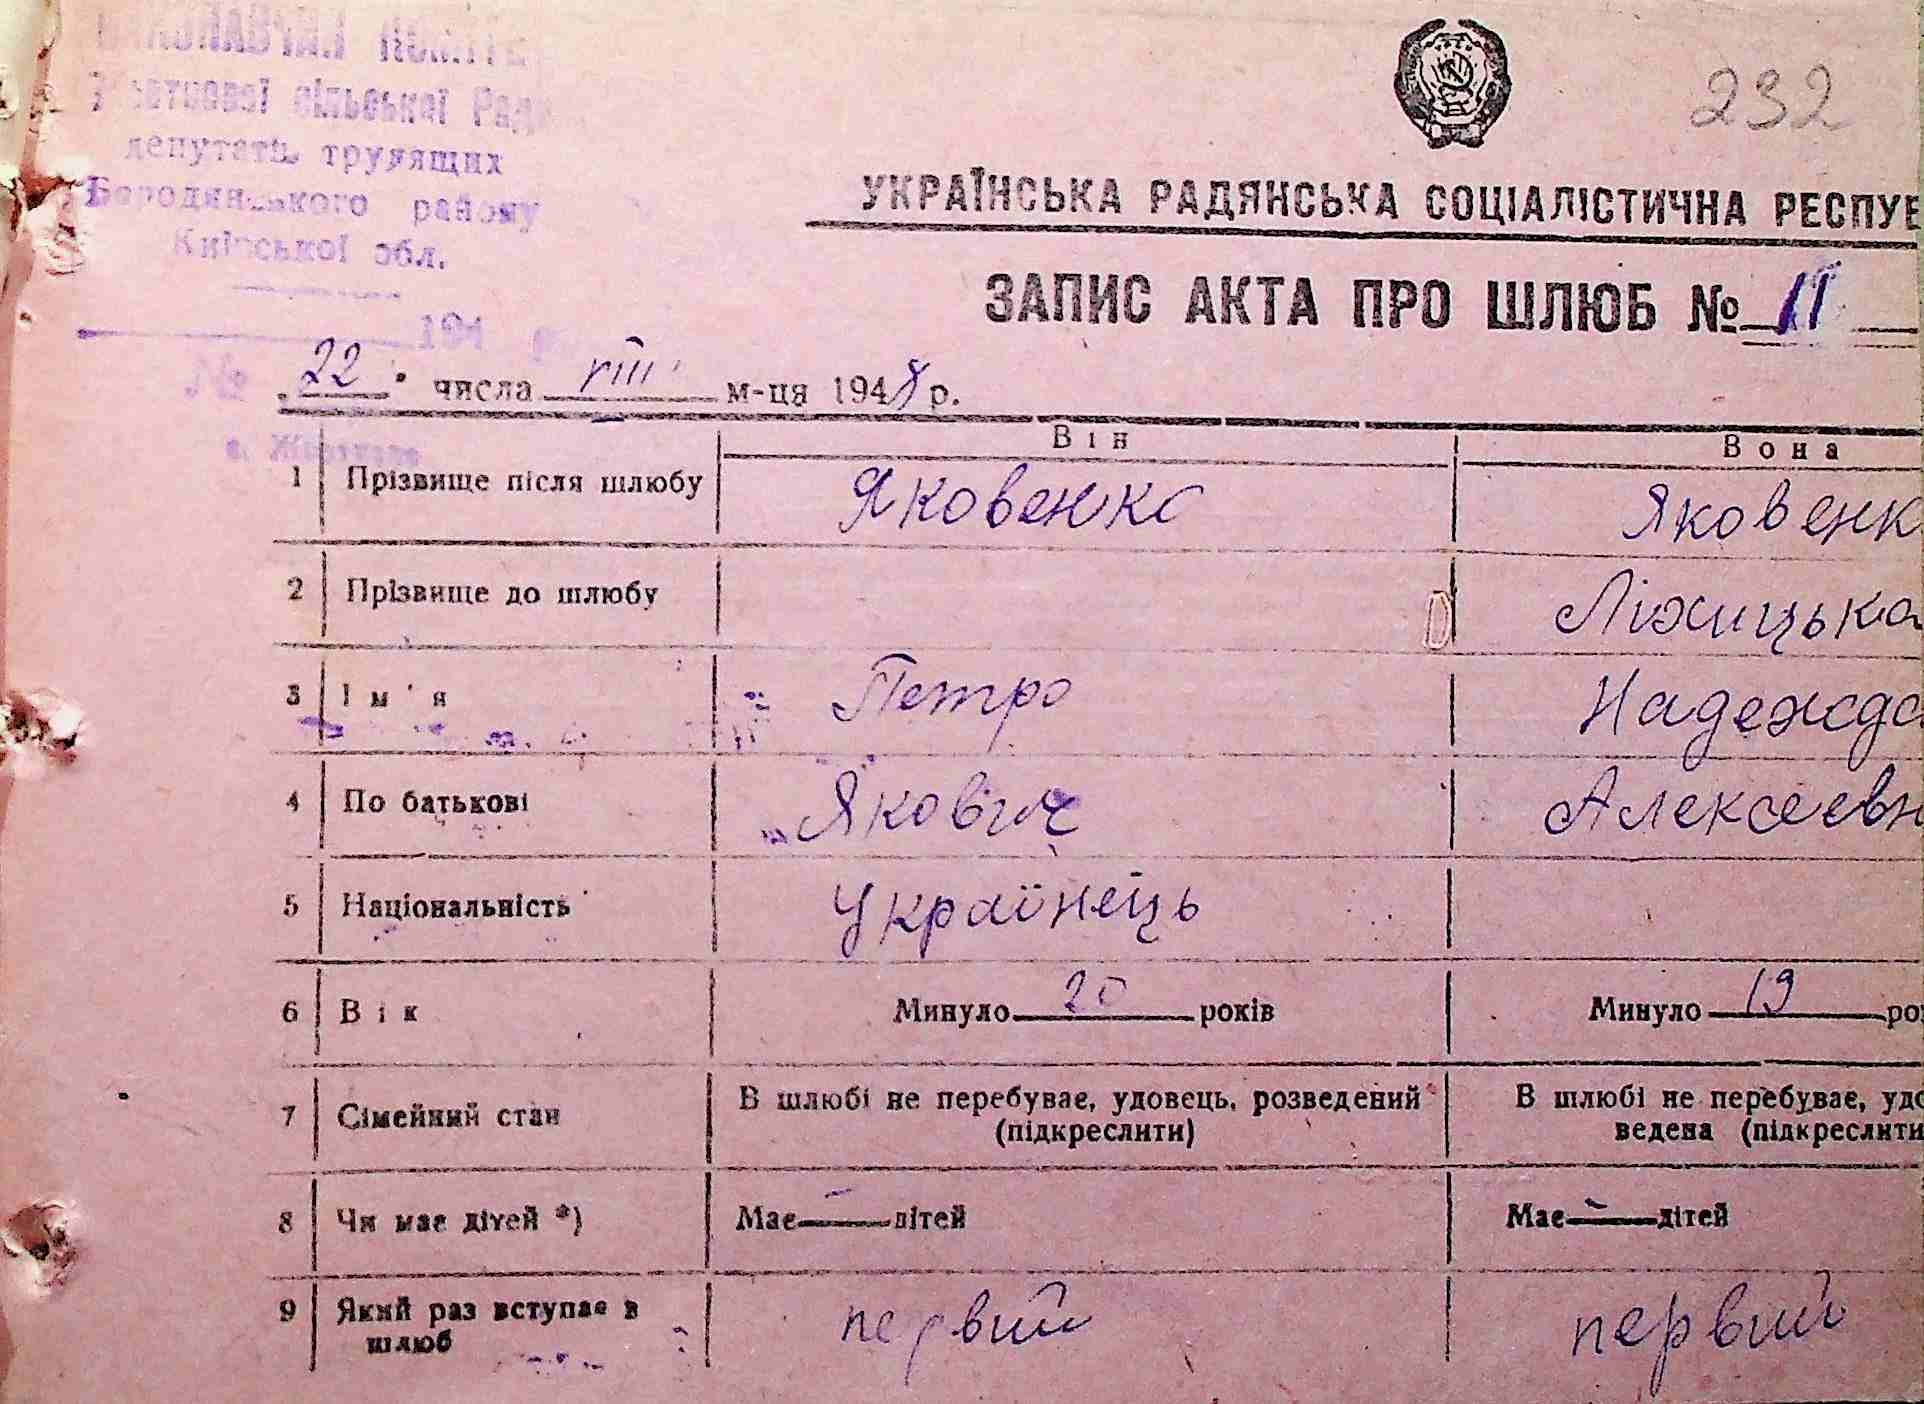 сільської Ради
депутатів трудящих
Бородянського району
Київської обл.
194
№
232
УКРАЇНСЬКА РАДЯНСЬКА СОЦІАЛІСТИЧНА РЕСПУБ
ЗАПИС АКТА ПРО ШЛЮБ № 11
22 числа VIII м-ця 1948 р.
Він Вона
1 Прізвище після шлюбу Яковенко Яковенк
2 Прізвище до шлюбу Ліхицька
3 Ім'я Петро Надежда
4 По батькові Яковіч Алексеевн
5 Національність Українець
6 Вік Минуло 20 років Минуло 19 ро
7 Сімейний стан В шлюбі не перебуває, удовець, розведений В шлюбі не перебуває, удо
(підкреслити) ведена (підкреслити
8 Чи має дітей *) Має — дітей Має — дітей
9 Який раз вступає в первий первий
шлюб